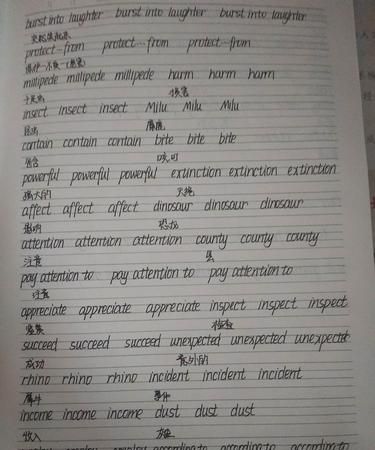 burst into laughter burst into laughter burst into laughter
突然笑起来
protect-from protect-from protect-from
millipede millipede millipede harm harm harm
千足虫 损害
insect insect insect Milu Milu Milu
昆虫 麋鹿
contain contain contain bite bite bite
包含 咬,叮
powerful powerful powerful extinction extinction extinction
强大的 灭绝
affect affect affect dinosaur dinosaur dinosaur
影响 恐龙
attention attention attention county county county
注意 县
pay attention to pay attention to pay attention to
注意
appreciate appreciate appreciate inspect inspect inspect
检查
succeed succeed succeed unexpected unexpected unexpected
成功 意外的
rhino rhino rhino incident incident incident
犀牛 事件
income income income dust dust dust
收入
employ employ employ according to according to according to